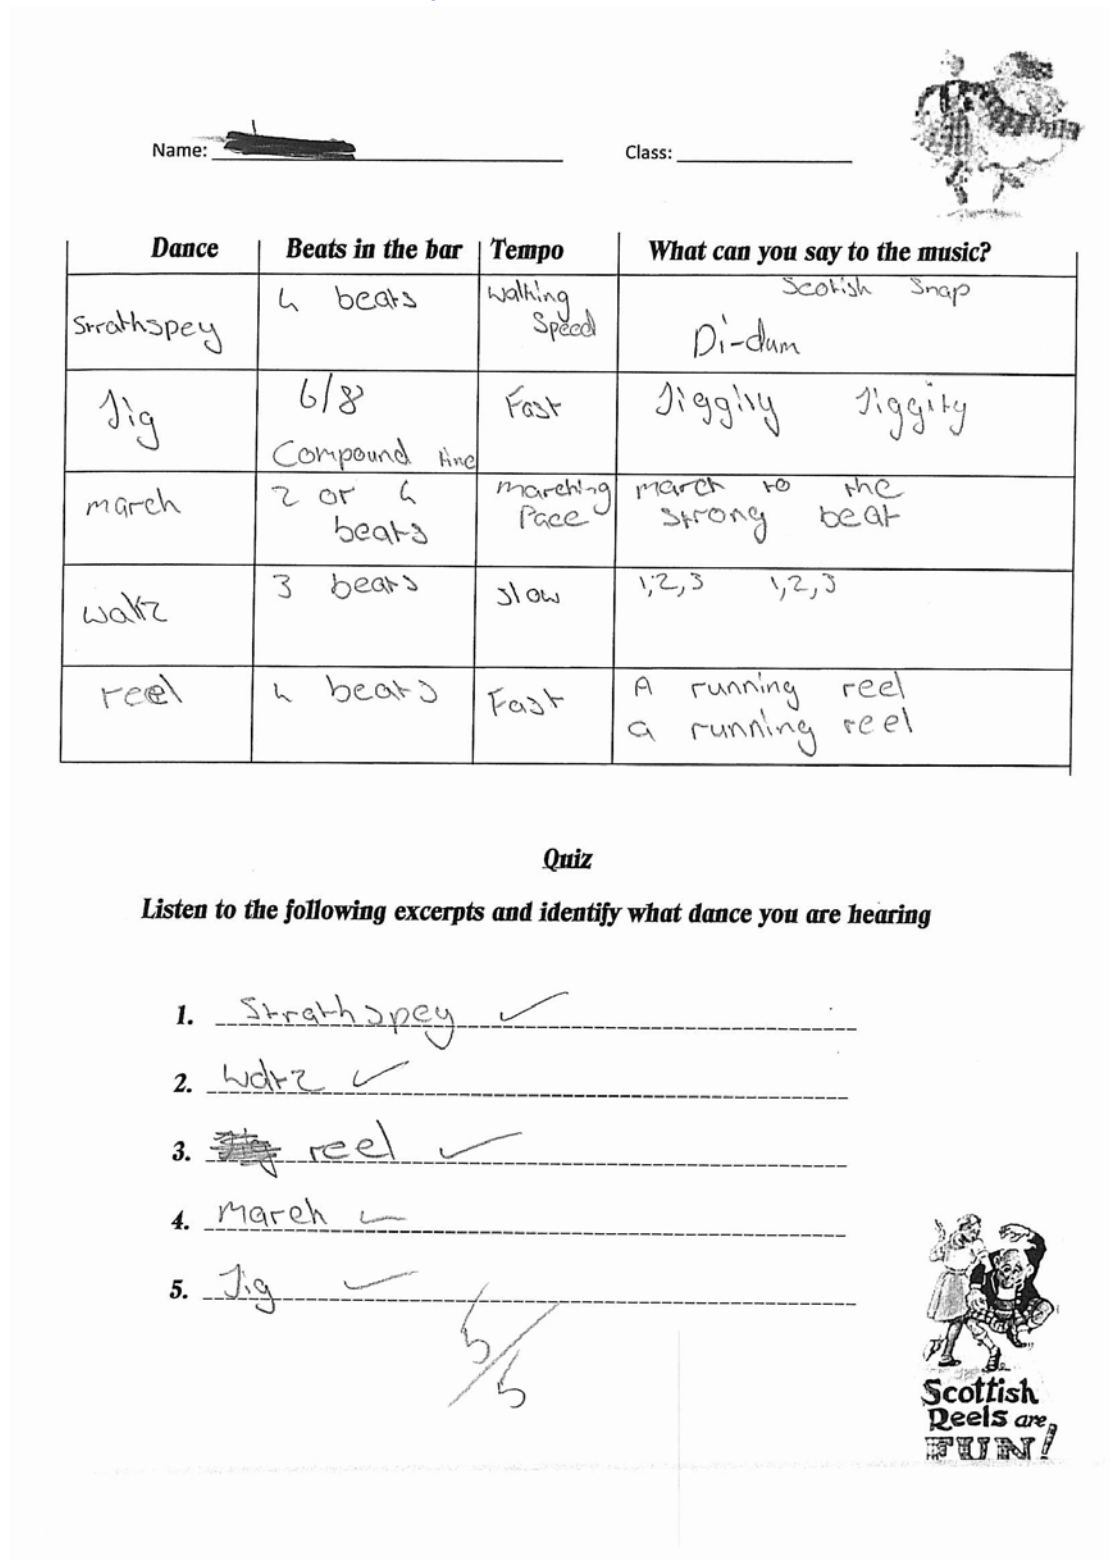 Name: Class:
Dance Beats in the bar Tempo What can you say to the music?
Strathspey 4 beats Walking Speed Scotish Snap Di-dum
Jig 6/8 Compound time Fast Jiggity Jiggity
march 2 or 4 beats Marching Pace march to the strong beat
waltz 3 beats slow 1,2,3 1,2,3
reel 4 beats Fast A running reel a running reel
Quiz
Listen to the following excerpts and identify what dance you are hearing
1. Strathspey
2. Waltz
3. reel
4. March
5. Jig
5/5
Scottish
Reels are
FUN!